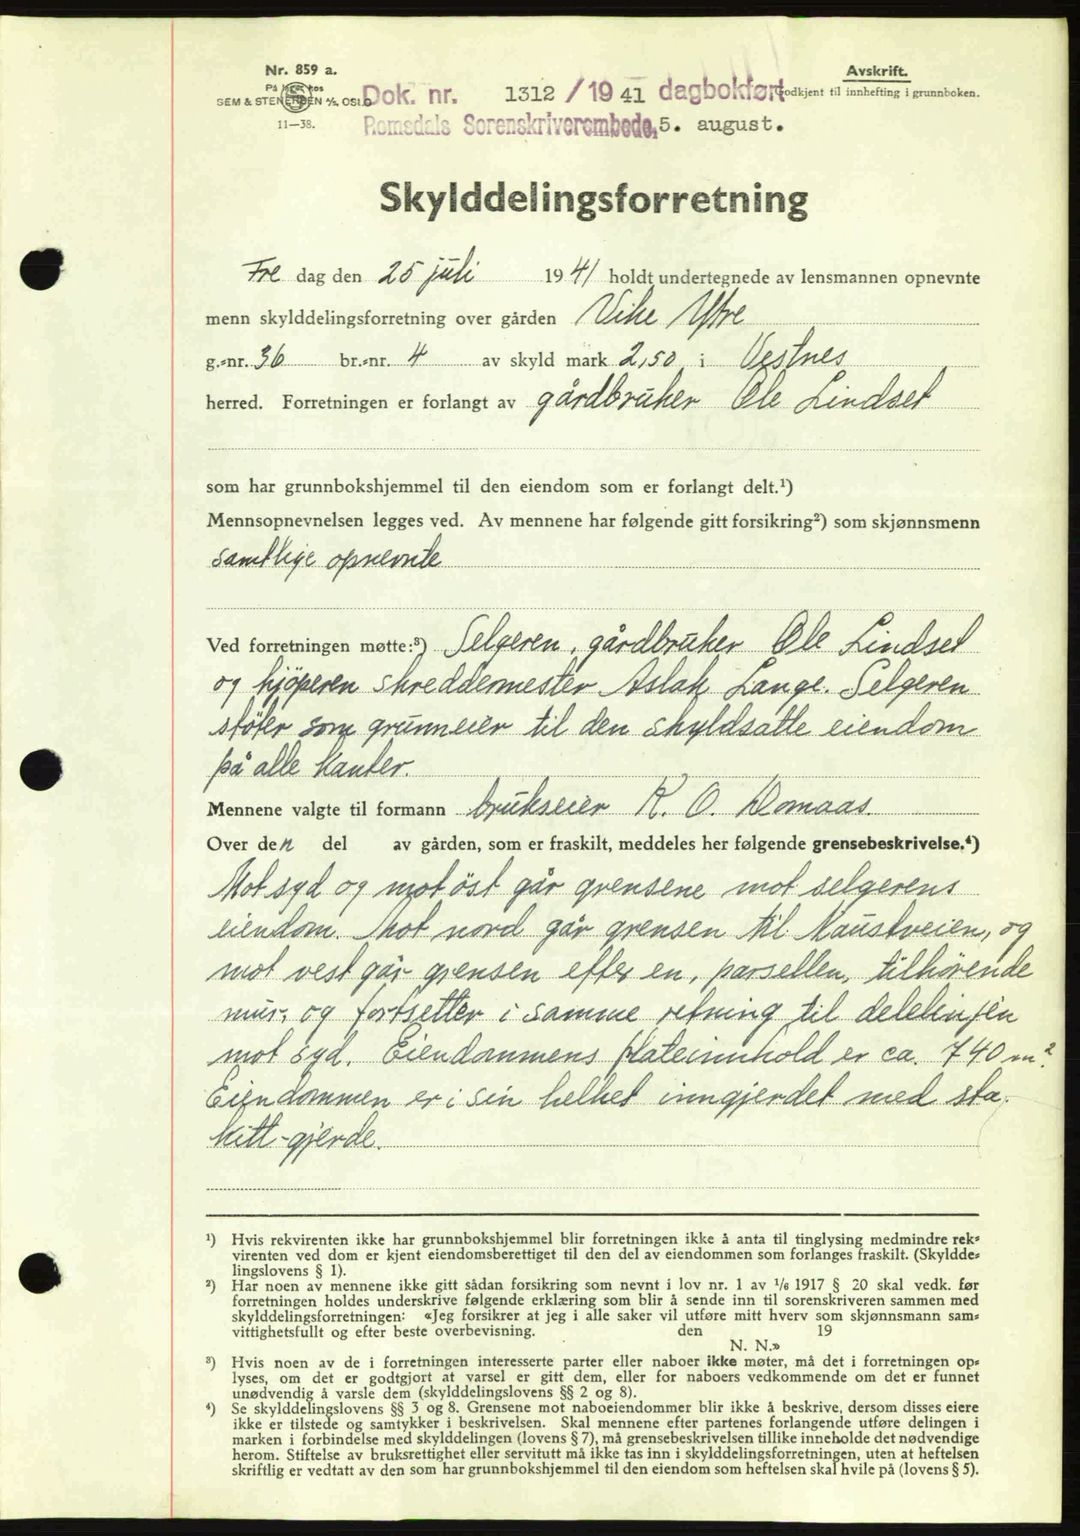 Nr. 859 a.
På lager hos
SEM & STENERSEN A/S, OSLO
11—38.
Avskrift.
Godkjent til innhefting i grunnboken.
Dok. nr. 1312 / 19 41 dagbokført
Romsdals Sorenskriverembede, 5. august.
Skylddelingsforretning
Fre dag den 25 juli 19 41 holdt undertegnede av lensmannen opnevnte
menn skylddelingsforretning over gården Vike Ytre
g.-nr. 36 br.-nr. 4 av skyld mark 2,50 i Vestnes
herred. Forretningen er forlangt av gårdbruker Ole Lindset
som har grunnbokshjemmel til den eiendom som er forlangt delt.¹)
Mennsopnevnelsen legges ved. Av mennene har følgende gitt forsikring²) som skjønnsmenn
samtlige opnevnte
Ved forretningen møtte:³) Selgeren, gårdbruker Ole Lindset
og kjöperen skreddermester Aslak Lange. Selgeren
støter som grunneier til den skyldsatte eiendom
på alle kanter.
Mennene valgte til formann brukseier K. O. Womaas.
Over den del av gården, som er fraskilt, meddeles her følgende grensebeskrivelse.⁴)
Mot syd og mot öst går grensene mot selgerens
eiendom. Mot nord går grensen til Naustveien, og
mot vest går grensen efter en, parsellen, tilhörende
mur, og fortsetter i samme retning til delelinjen
mot syd. Eiendommens flateinnhold er ca. 740 m².
Eiendommen er i sin helhet inngjerdet med sta-
kitt-gjerde.
¹) Hvis rekvirenten ikke har grunnbokshjemmel blir forretningen ikke å anta til tinglysing medmindre rek-
virenten ved dom er kjent eiendomsberettiget til den del av eiendommen som forlanges fraskilt. (Skyldde-
lingslovens § 1).
²) Har noen av mennene ikke gitt sådan forsikring som nevnt i lov nr. 1 av 1/6 1917 § 20 skal vedk. før
forretningen holdes underskrive følgende erklæring som blir å sende inn til sorenskriveren sammen med
skylddelingsforretningen: «Jeg forsikrer at jeg i alle saker vil utføre mitt hverv som skjønnsmann sam-
vittighetsfullt og efter beste overbevisning. den 19
N. N.»
³) Hvis noen av de i forretningen interesserte parter eller naboer ikke møter, må det i forretningen op-
lyses, om det er godtgjort at varsel er gitt dem, eller for naboers vedkommende om det er funnet
unødvendig å varsle dem (skylddelingslovens §§ 2 og 8).
⁴) Se skylddelingslovens §§ 3 og 8. Grensene mot naboeiendommer blir ikke å beskrive, dersom disses eiere
ikke er tilstede og samtykker i beskrivelsen. Skal mennene efter partenes forlangende utføre delingen i
marken i forbindelse med skylddelingen (lovens § 7), må grensebeskrivelsen tillike inneholde det nødvendige
herom. Stiftelse av bruksrettighet eller servitutt må ikke tas inn i skylddelingsforretningen, uten at heftelsen
skriftlig er vedtatt av den som har grunnbokshjemmel til den eiendom som heftelsen skal hvile på (lovens § 5).